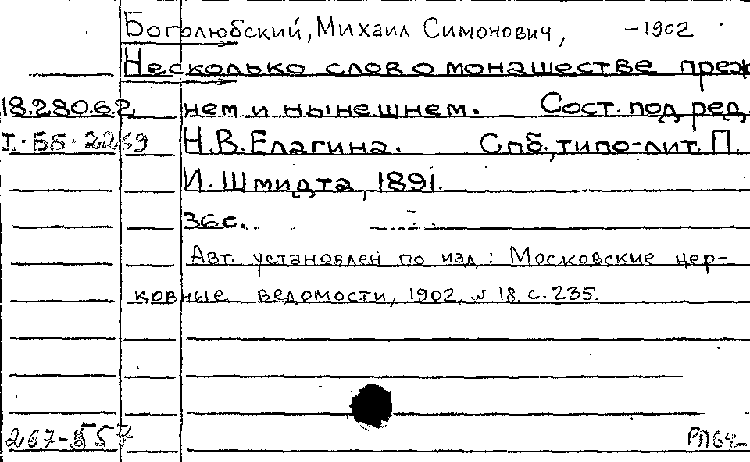 Боголюбский, Михаил Симонович, -1902
Несколько слов о монашестве преж
18.280.6.2 нем и нынешнем. Сост. под ред.
I.-ББ-2269 Н.В.Елагина. Спб., типо-лит. П.
И. Шмидта, 1891.
36с.
Авт. установлен по изд: Московские цер-
ковные ведомости, 1902, № 18, с. 235.
267-857 РП64-